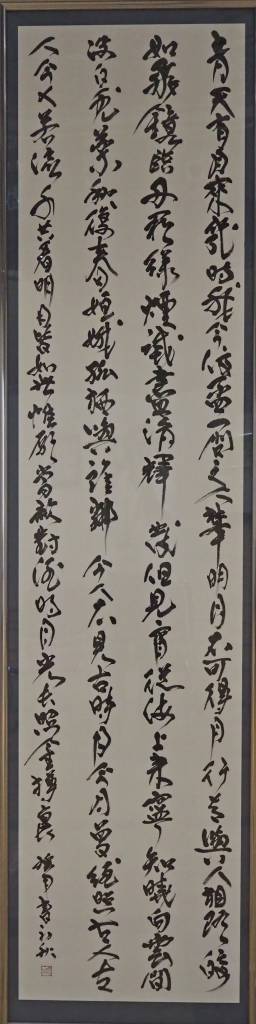 青天有月來幾時我今停盃一問之人攀明月不可得月行却與人相隨皎
如飛鏡臨丹闕綠煙滅盡清輝發但見宵從海上來寧知曉向雲間
沒白兔搗藥秋復春姮娥孤栖與誰鄰今人不見古時月今月曾經照古人古
人今人若流水共看明月皆如此惟願當歌對酒時月光長照金樽裏